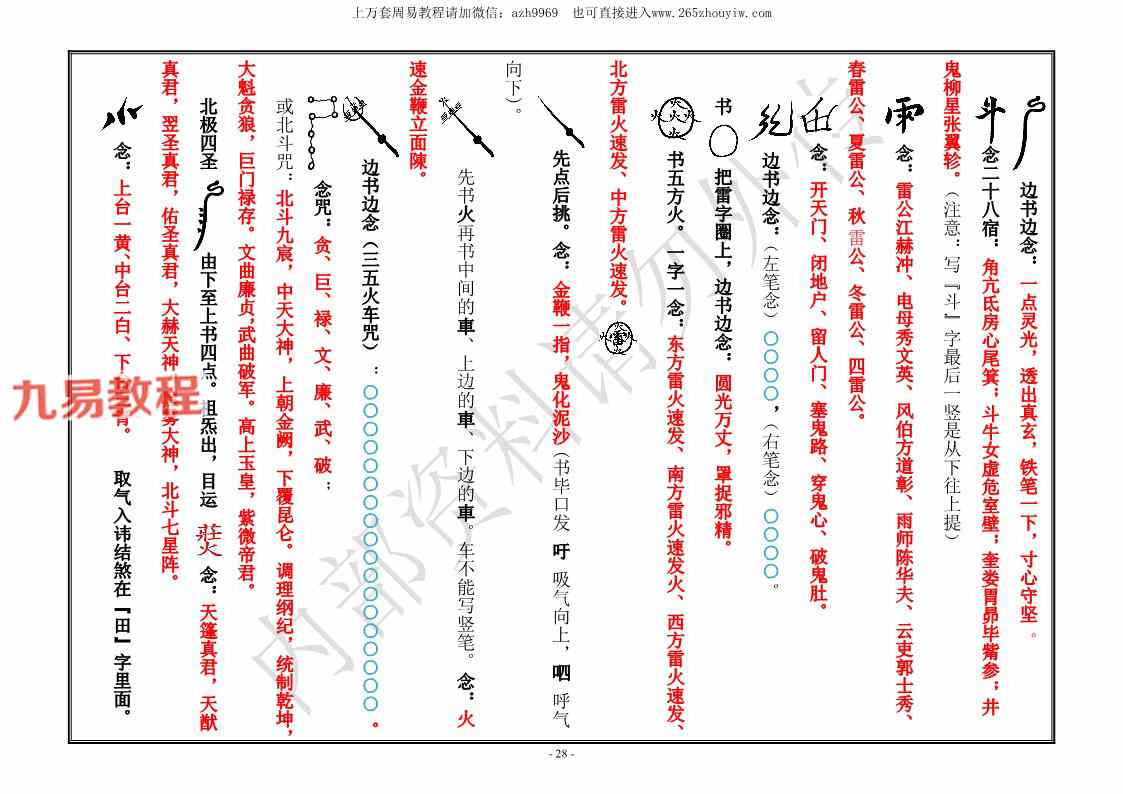 上万套周易教程请加微信：azh9969 也可直接进入www.265zhouyiw.com
边书边念：一点灵光，透出真玄，铁笔一下，寸心守坚。
斗 念二十八宿：角亢氐房心尾箕；斗牛女虚危室壁；奎娄胃昴毕觜参；井
鬼柳星张翼轸。（注意：写『斗』字最后一竖是从下往上提）
雨 念：雷公江赫冲、电母秀文英、风伯方道彰、雨师陈华夫、云吏郭士秀、
春雷公、夏雷公、秋雷公、冬雷公、四雷公。
念：开天门、闭地户、留人门、塞鬼路、穿鬼心、破鬼肚。
边书边念：（左笔念）〇〇〇〇，（右笔念）〇〇〇〇。
书 把雷字圈上，边书边念：圆光万丈，罩捉邪精。
火火火火火 书五方火。一字一念：东方雷火速发、南方雷火速发火、西方雷火速发、
北方雷火速发、中方雷火速发。
先点后挑。念：金鞭一指，鬼化泥沙（书毕口发 吁 吸气向上，呬 呼气
向下）。
先书火再书中间的車、上边的車、下边的車。车不能写竖笔。念：火
速金鞭立面陳。
边书边念（三五火车咒）：〇〇〇〇〇〇〇〇〇〇〇〇〇〇〇〇〇〇。
念咒：贪、巨、禄、文、廉、武、破；
或北斗咒：北斗九宸，中天大神，上朝金阙，下覆昆仑。调理纲纪，统制乾坤，
大魁贪狼，巨门禄存。文曲廉贞，武曲破军。高上玉皇，紫微帝君。
北极四圣 由下至上书四点。咀炁出，目运 念：天篷真君，天猷
真君，翌圣真君，佑圣真君，大赫天神 大神，北斗七星阵。
念：上台一黄、中台二白、下 青。 取气入讳结煞在『田』字里面。
九易教程
内部资料请勿外传
- 28 -